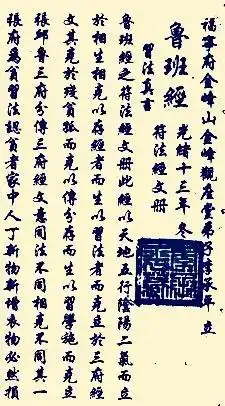 福寧府金峰山金峰觀座堂弟子李承平立
魯班經 光緒十三年冬
符法經文冊
習法真言
魯班經之符法經文冊此經以天地五行陰陽二氣而立
於相生相克以存經者而生以習法者而克立於三府經
文其克於殘貧孤而克以傳分存而生以習學施而克立
張邱魯三府分傳三府經文意同法不同相克不同其一
張府為貧習法認貧者家中人丁新物新增衣物必然損